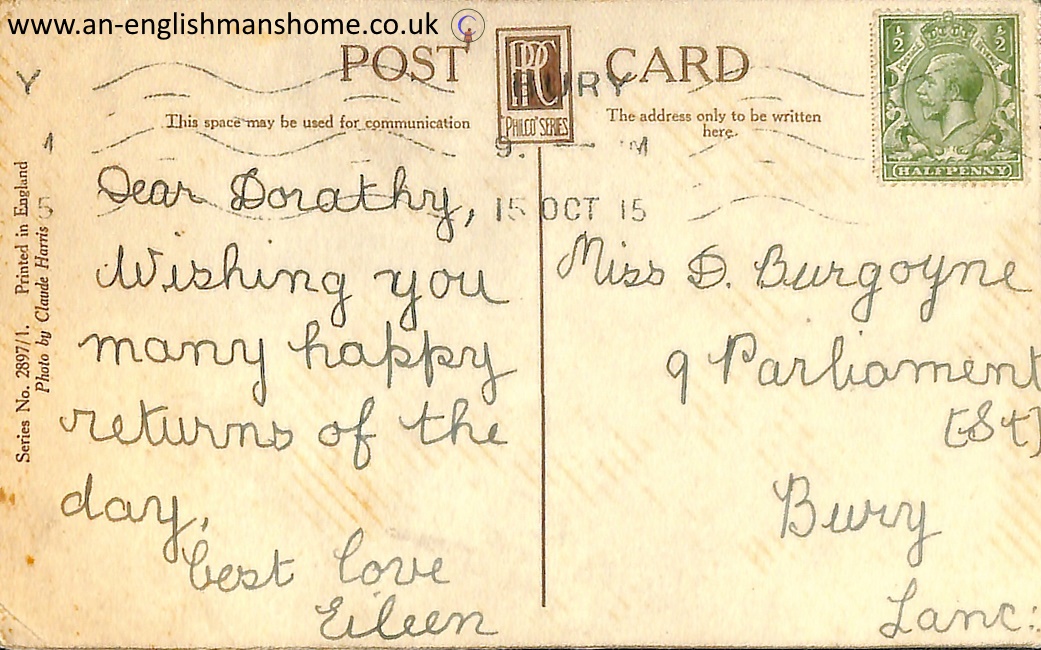 www.an-englishmanshome.co.uk
POST CARD
PPC
"PHILCO" SERIES
This space may be used for communication
The address only to be written
here.
½ ½
HALFPENNY
BURY
15 OCT 15
Series No. 2897/1. Printed in England
Photo by Claude Harris
Dear Dorathy,
Wishing you
many happy
returns of the
day,
best love
Eileen
Miss D. Burgoyne
9 Parliament
[St]
Bury
Lanc: